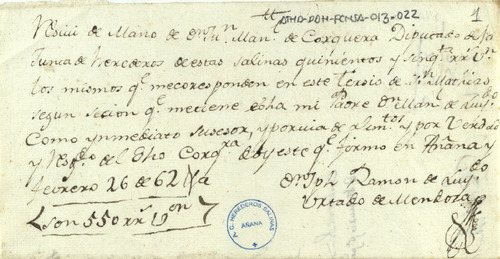 ATHA-DAH-FCNSA-013-022
1
Reciui de Mano de Dn Jun Manl de Corquera Diputado de la
Junta de herederos de estas Salinas quinientos y sinqta rrs Vn
los mismos qe mecoresponden en este tersio de Sn Mathias
segun secion qe metiene echa mi Padre Dn Manl de Luydo
Como ynmediato susesor, y por via de Alemtos y por Verdad
y Resgdo del dho Corqra doy este qe formo en Añana y
febrero 26 de 62
Son 550 rrs Von
Dn Jph Ramon de Luydo
Urtado de Mendoza
A.C. HEREDEROS SALINAS
AÑANA